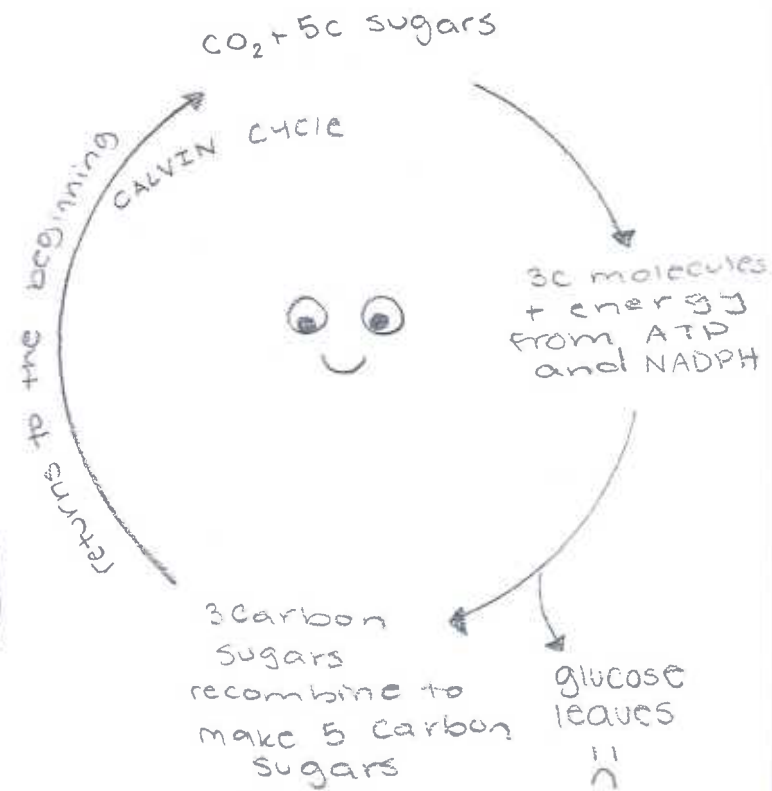 CO₂ + 5C sugars
CALVIN CYCLE
3C molecules
+ energy
from ATP
and NADPH
glucose
leaves
3 Carbon
sugars
recombine to
make 5 Carbon
sugars
returns to the beginning